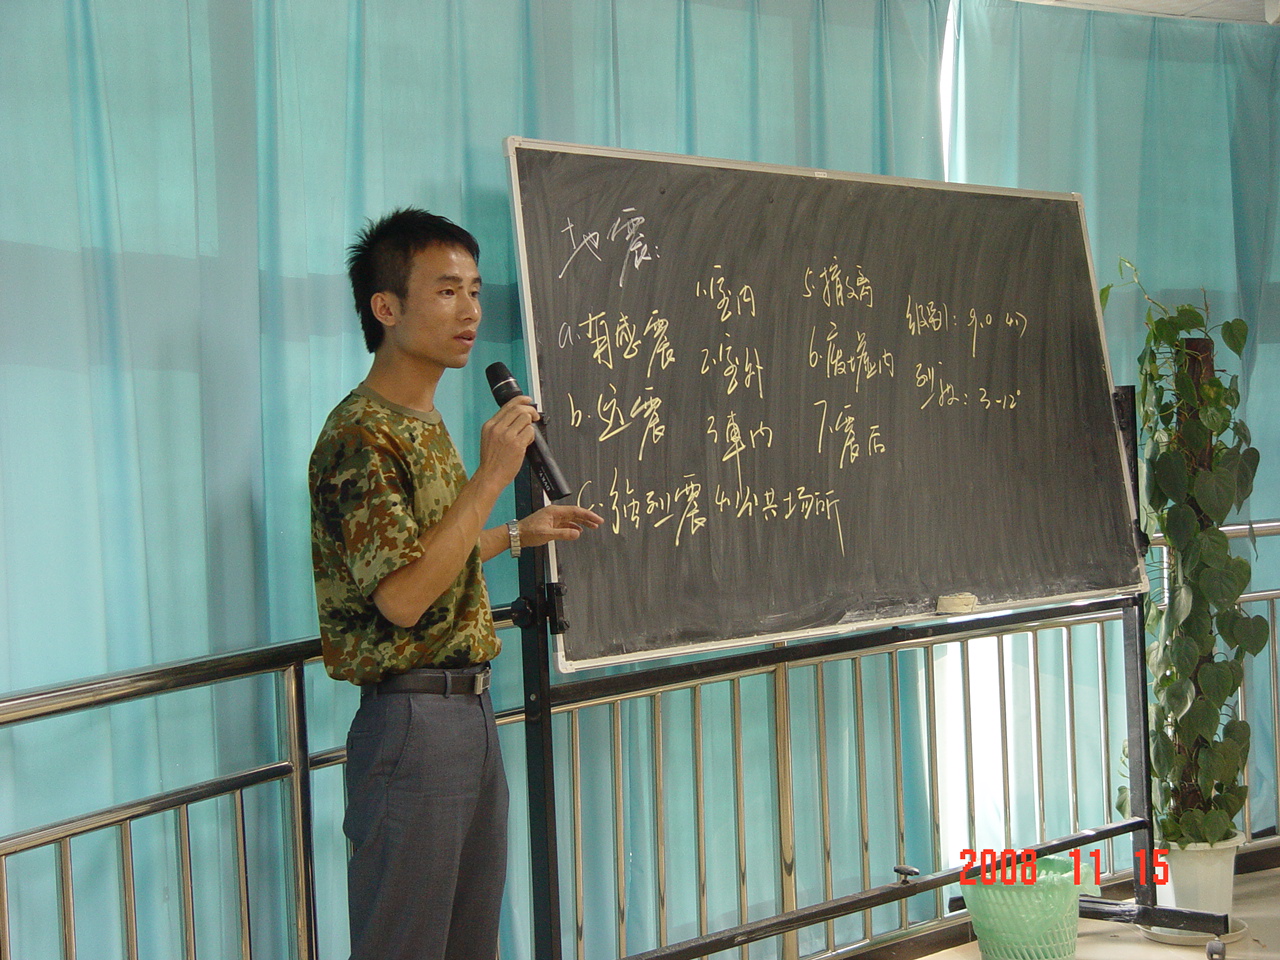 地震:
a.有感震
b.远震
c.强烈震
1.室内
2.室外
3車内
4.公共场所
5.撤离
6.废墟内
7.震后
级别: 9.0
烈度: 3-12°
2008 11 15